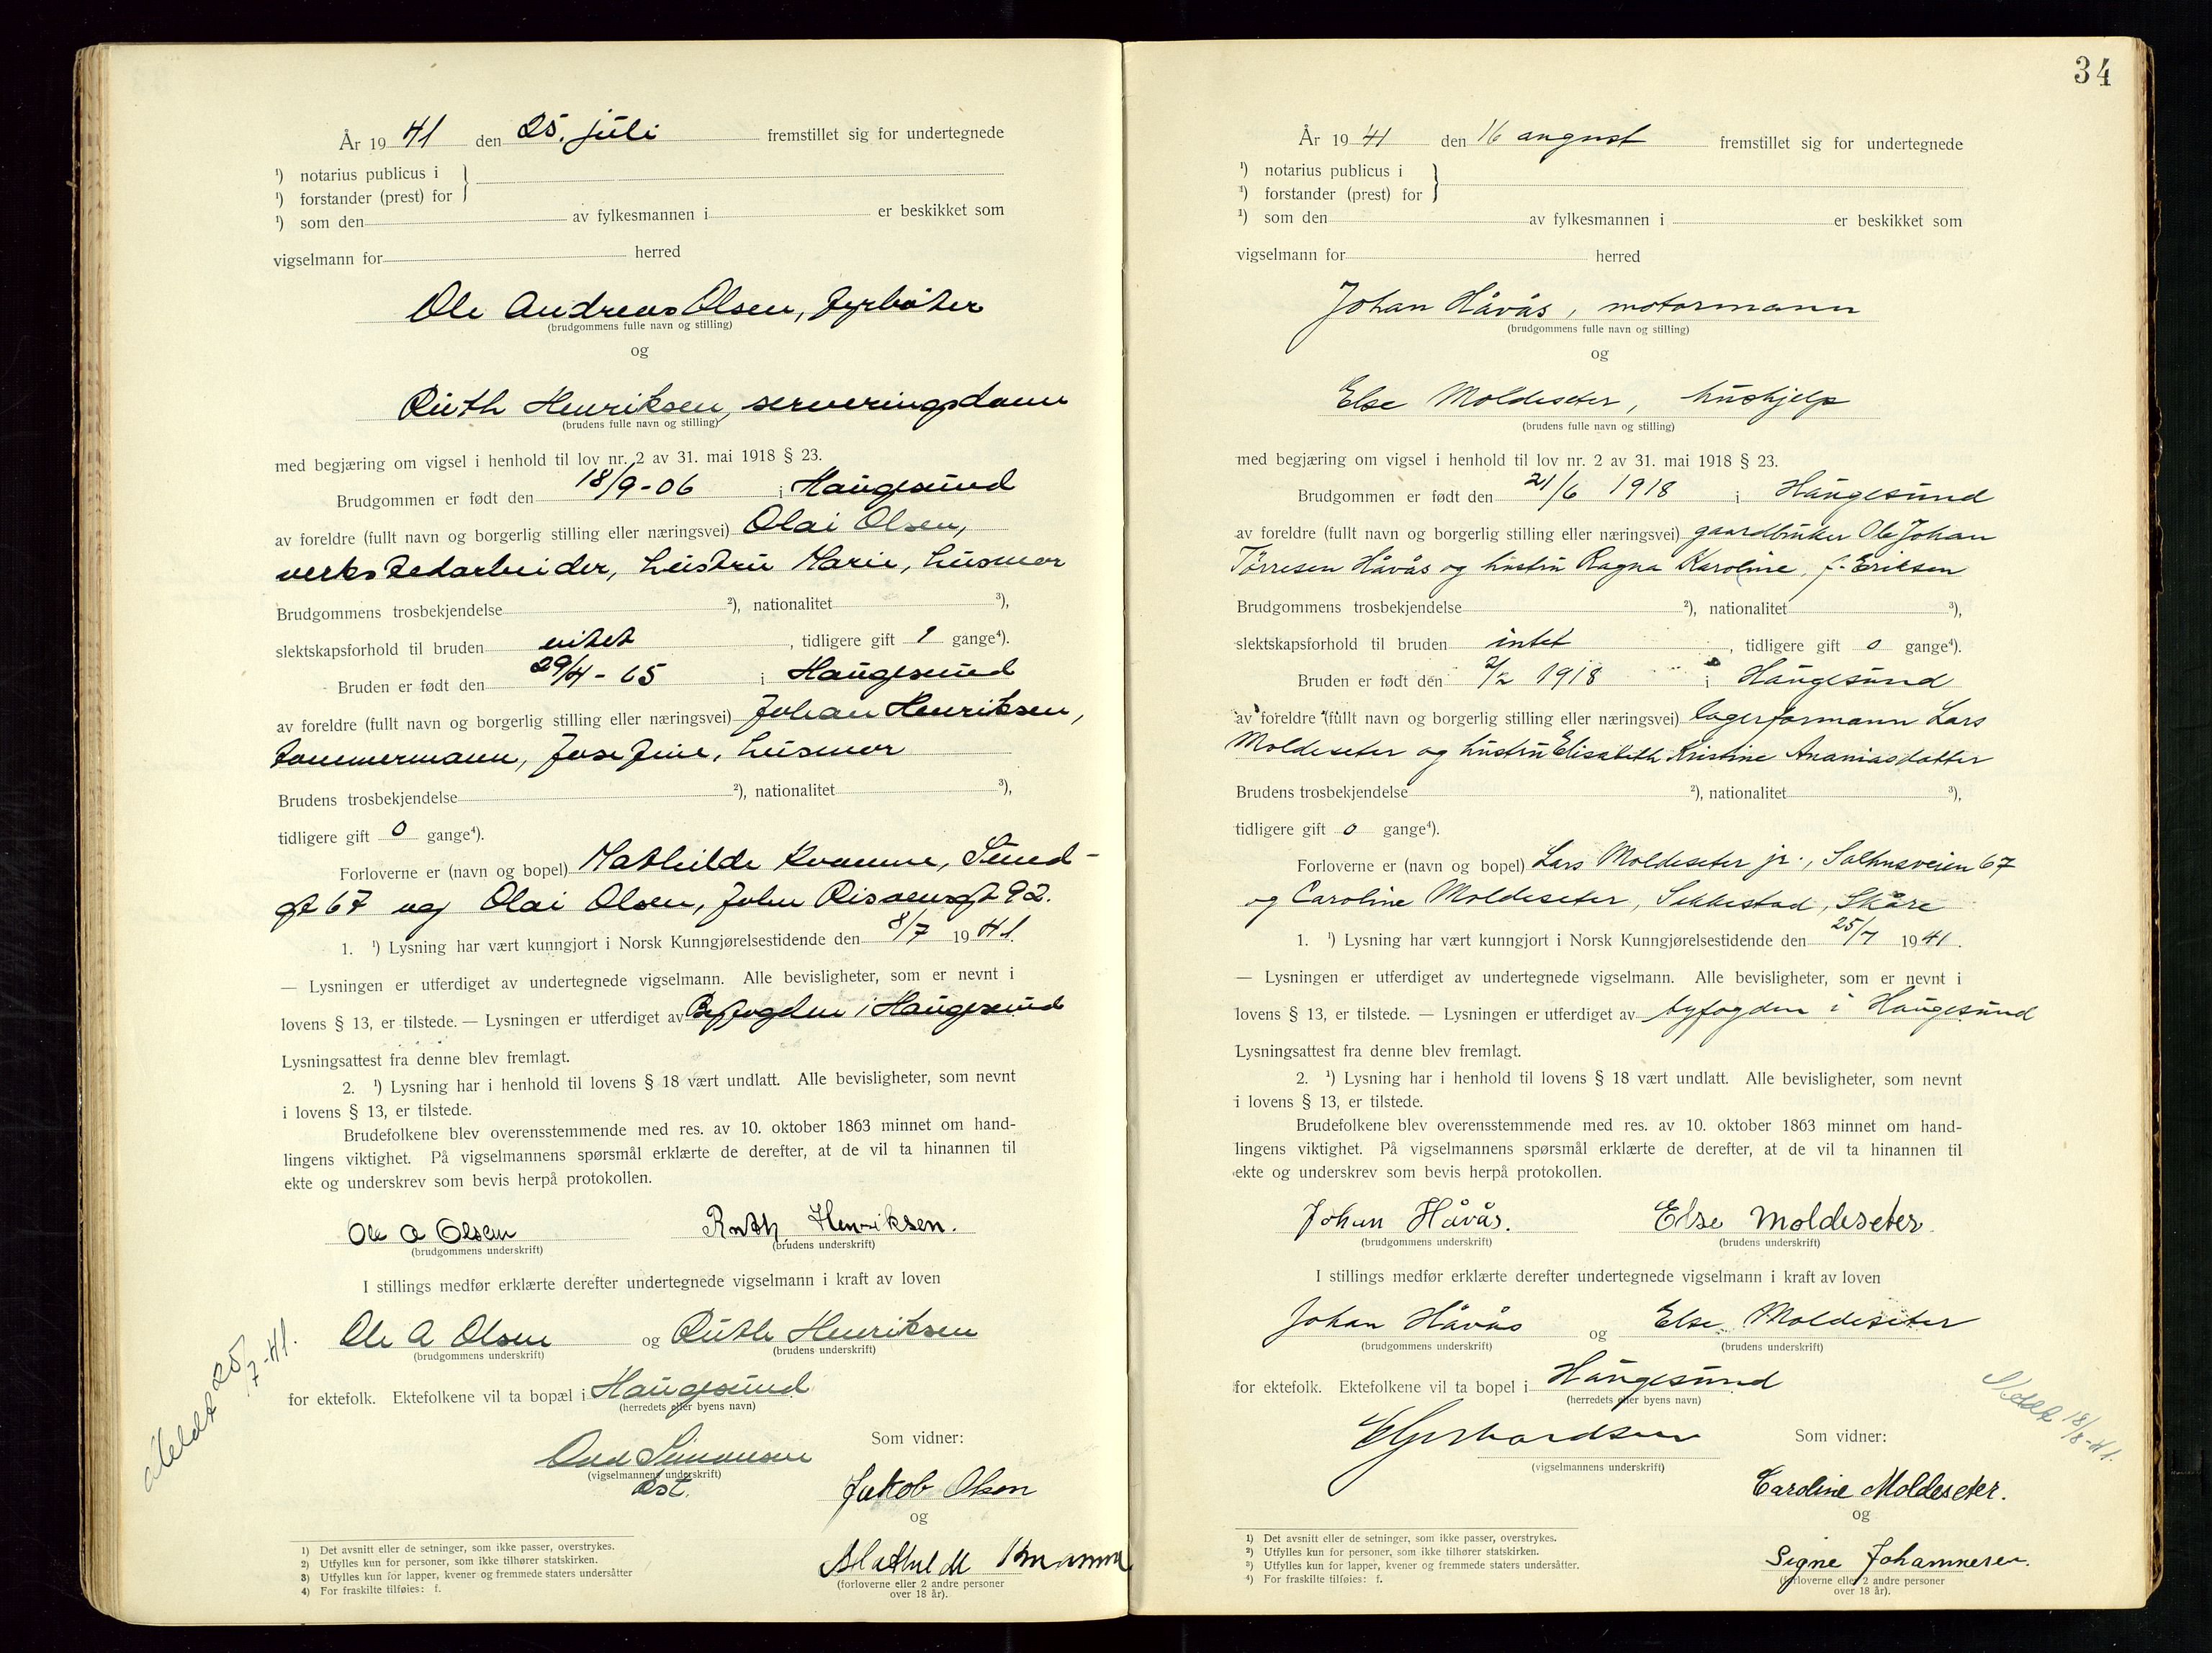 År 1941 den 25. juli fremstillet sig for undertegnede
¹) notarius publicus i
¹) forstander (prest) for
¹) som den av fylkesmannen i er beskikket som
vigselmann for herred
Ole Andreas Olsen, fyrbøter
(brudgommens fulle navn og stilling)
og
Ruth Henriksen, serveringsdame
(brudens fulle navn og stilling)
med begjæring om vigsel i henhold til lov nr. 2 av 31. mai 1918 § 23.
Brudgommen er født den 18/9-06 i Haugesund
av foreldre (fullt navn og borgerlig stilling eller næringsvei) Olai Olsen,
verkstedarbeider, hustru Marie, husmor
Brudgommens trosbekjendelse ²), nationalitet ³),
slektskapsforhold til bruden intet, tidligere gift 1 gange⁴).
Bruden er født den 29/4-15 i Haugesund
av foreldre (fullt navn og borgerlig stilling eller næringsvei) Johan Henriksen,
tømmermann, Josefine, husmor
Brudens trosbekjendelse ²), nationalitet ³),
tidligere gift 0 gange⁴).
Forloverne er (navn og bopel) Mathilde Kvamme, Sund-
gt 67 og Olai Olsen, John Risøensgt 92.
1. ¹) Lysning har vært kunngjort i Norsk Kunngjørelsestidende den 8/7 1941.
— Lysningen er utferdiget av undertegnede vigselmann. Alle bevisligheter, som er nevnt i
lovens § 13, er tilstede. — Lysningen er utferdiget av Byfogden i Haugesund
Lysningsattest fra denne blev fremlagt.
2. ¹) Lysning har i henhold til lovens § 18 vært undlatt. Alle bevisligheter, som nevnt
i lovens § 13, er tilstede.
Brudefolkene blev overensstemmende med res. av 10. oktober 1863 minnet om hand-
lingens viktighet. På vigselmannens spørsmål erklærte de derefter, at de vil ta hinannen til
ekte og underskrev som bevis herpå protokollen.
Ole A Olsen Ruth Henriksen.
(brudgommens underskrift) (brudens underskrift)
I stillings medfør erklærte derefter undertegnede vigselmann i kraft av loven
Ole A Olsen og Ruth Henriksen
(brudgommens underskrift) (brudens underskrift)
for ektefolk. Ektefolkene vil ta bopæl i Haugesund
(herredets eller byens navn)
Meldt 25/7-41.
Som vidner:
Odd Simonsen
(vigselmannens underskrift)
Jakob Olsen
og
Mathilde Kvamme
(forloverne eller 2 andre personer
over 18 år).
1) Det avsnitt eller de setninger, som ikke passer, overstrykes.
2) Utfylles kun for personer, som ikke tilhører statskirken.
3) Utfylles kun for lapper, kvener og fremmede staters undersåtter
4) For fraskilte tilføies: f.
34
År 1941 den 16 august fremstillet sig for undertegnede
¹) notarius publicus i
¹) forstander (prest) for
¹) som den av fylkesmannen i er beskikket som
vigselmann for herred
Johan Håvås, motormann
(brudgommens fulle navn og stilling)
og
Else Moldeseter, hushjelp
(brudens fulle navn og stilling)
med begjæring om vigsel i henhold til lov nr. 2 av 31. mai 1918 § 23.
Brudgommen er født den 21/6 1918 i Haugesund
av foreldre (fullt navn og borgerlig stilling eller næringsvei) gaardbruker Ole Johan
Tørresen Håvås og hustru Ragna Karoline, f. Eriksen
Brudgommens trosbekjendelse ²), nationalitet ³),
slektskapsforhold til bruden intet, tidligere gift 0 gange⁴).
Bruden er født den 2/2 1918 i Haugesund
av foreldre (fullt navn og borgerlig stilling eller næringsvei) lagerformann Lars
Moldeseter og hustru Elisabeth Kristine Ananiasdatter
Brudens trosbekjendelse ²), nationalitet ³),
tidligere gift 0 gange⁴).
Forloverne er (navn og bopel) Lars Moldeseter jr., Salhusveien 67
og Caroline Moldeseter, Sakkestad, Skåre
1. ¹) Lysning har vært kunngjort i Norsk Kunngjørelsestidende den 25/7 1941.
— Lysningen er utferdiget av undertegnede vigselmann. Alle bevisligheter, som er nevnt i
lovens § 13, er tilstede. — Lysningen er utferdiget av byfogden i Haugesund
Lysningsattest fra denne blev fremlagt.
2. ¹) Lysning har i henhold til lovens § 18 vært undlatt. Alle bevisligheter, som nevnt
i lovens § 13, er tilstede.
Brudefolkene blev overensstemmende med res. av 10. oktober 1863 minnet om hand-
lingens viktighet. På vigselmannens spørsmål erklærte de derefter, at de vil ta hinannen til
ekte og underskrev som bevis herpå protokollen.
Johan Håvås. Else Moldeseter.
(brudgommens underskrift) (brudens underskrift)
I stillings medfør erklærte derefter undertegnede vigselmann i kraft av loven
Johan Håvås og Else Moldeseter
(brudgommens underskrift) (brudens underskrift)
for ektefolk. Ektefolkene vil ta bopel i Haugesund
(herredets eller byens navn)
Meldt 18/8-41.
EGerhardsen
Som vidner:
(vigselmannens underskrift)
Caroline Moldeseter.
og
Signe Johannesen.
(forloverne eller 2 andre personer
over 18 år).
1) Det avsnitt eller de setninger, som ikke passer, overstrykes.
2) Utfylles kun for personer, som ikke tilhører statskirken.
3) Utfylles kun for lapper, kvener og fremmede staters undersåtter.
4) For fraskilte tilføies: f.